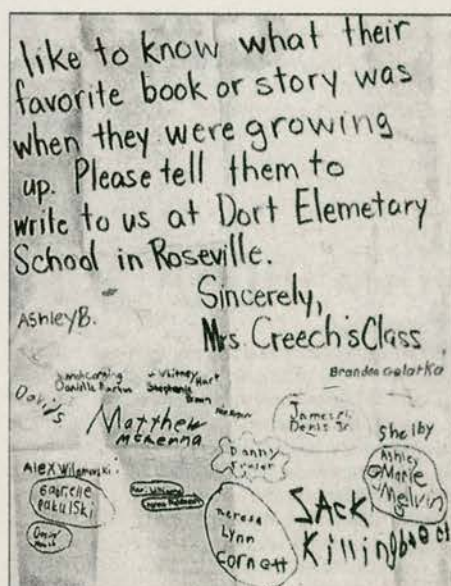 like to know what their
favorite book or story was
when they were growing
up. Please tell them to
write to us at Dort Elemetary
School in Roseville.
Sincerely,
Mrs. Creech's Class
Ashley B.
Branden Golatka
Whitney Hart
Danielle
Stephanie
Brown
David S
Matthew
McKenna
James R.
Denis Jr.
Shelby
Danny
Fraser
Ashley
Marie
Melvin
Alex
Gabrielle
Pakulski
Teresa
Lynn
Cornett
ZAck